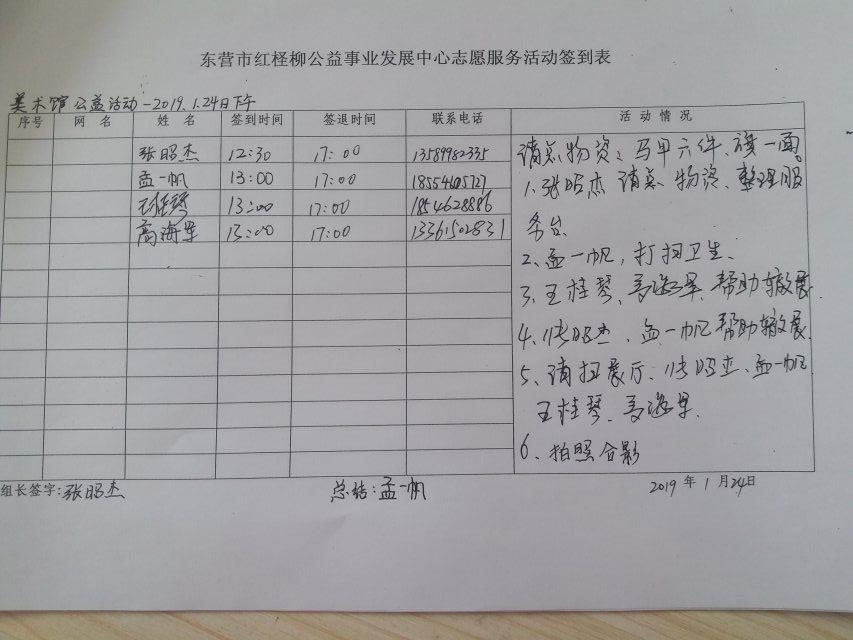 东营市红柽柳公益事业发展中心志愿服务活动签到表
美术馆公益活动-2019.1.24日下午
序号 网名 姓名 签到时间 签退时间 联系电话 活动情况
张昭杰 12:30 17:00 13589982335
孟一帆 13:00 17:00
王桂琴 13:00 17:00 1854628886
高海军 13:00 17:00 13361502831
清点物资、马甲六件、旗一面。
1.张昭杰 清点物资、整理服
务台
2、孟一帆,打扫卫生、
3、王桂琴、高海军、帮助撤展
4、张昭杰、孟一帆帮助撤展
5、清扫展厅、张昭杰、孟一帆
王桂琴、高海军.
6、拍照合影
组长签字:张昭杰 总结:孟一帆 2019年1月24日